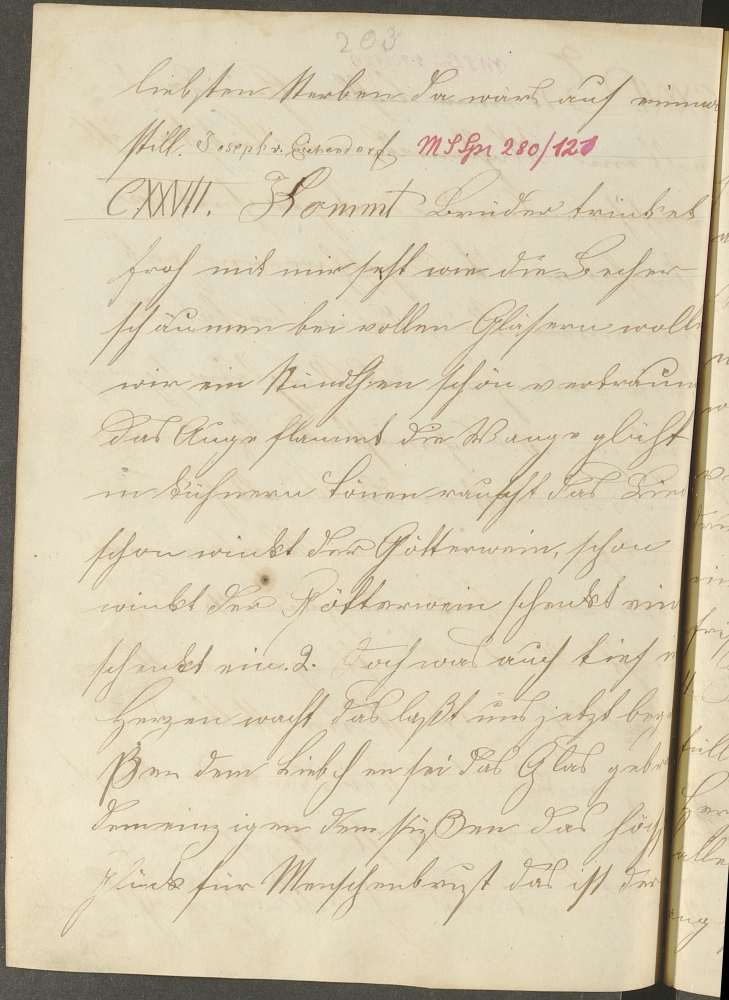 203
liebsten sterben da wärs auf einma
still. Joseph v. Eichendorf MSGr 280/127
CXXVII. Kommt Brüder trinket
froh mit mir seht wie die Becher
schäumen bei vollen Gläsern woll
wir ein Stündchen schön verträum
Das Auge flammt die Wange glüht
in kühnern Tönen rauscht das Lied
schon winkt der Götterwein, schon
winkt der Götterwein schenkt ein
schenkt ein. 2. Doch was auch tief i
Herzen wacht das laßt uns jetzt begr
ßen dem Liebchen sei das Glas gebr
dem einzigen dem süßen das höch
Glück für Menschenbrust das ist der